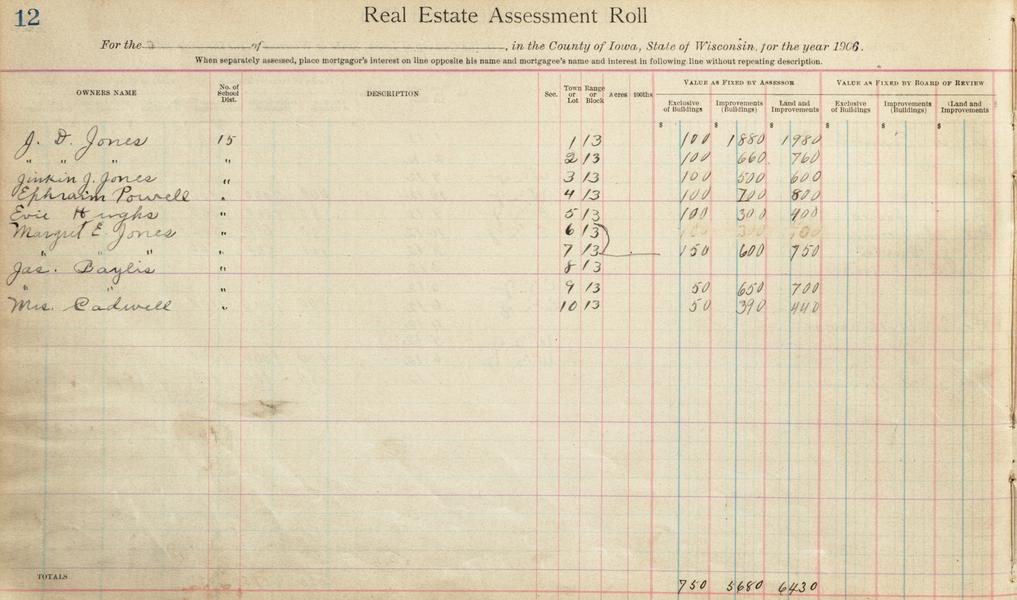 12
Real Estate Assessment Roll
For the of , in the County of Iowa, State of Wisconsin, for the year 1906.
When separately assessed, place mortgagor's interest on line opposite his name and mortgagee's name and interest in following line without repeating description.
OWNERS NAME No. of School Dist. DESCRIPTION Sec. Town or Lot Range or Block Acres 100ths VALUE AS FIXED BY ASSESSOR VALUE AS FIXED BY BOARD OF REVIEW
Exclusive of Buildings Improvements (Buildings) Land and Improvements Exclusive of Buildings Improvements (Buildings) Land and Improvements
$ $ $ $ $ $
J. D. Jones 15 1 13 100 1880 1980
" " " " 2 13 100 660 760
Jinkin J. Jones " 3 13 100 500 600
Ephraim Powell " 4 13 100 700 800
Evie Hughs " 5 13 100 300 400
Margret E Jones " 6 13
" " " " 7 13 150 600 750
Jas. Baylis " 8 13
" " " 9 13 50 650 700
Mrs. Cadwell " 10 13 50 390 440
TOTALS 750 5680 6430